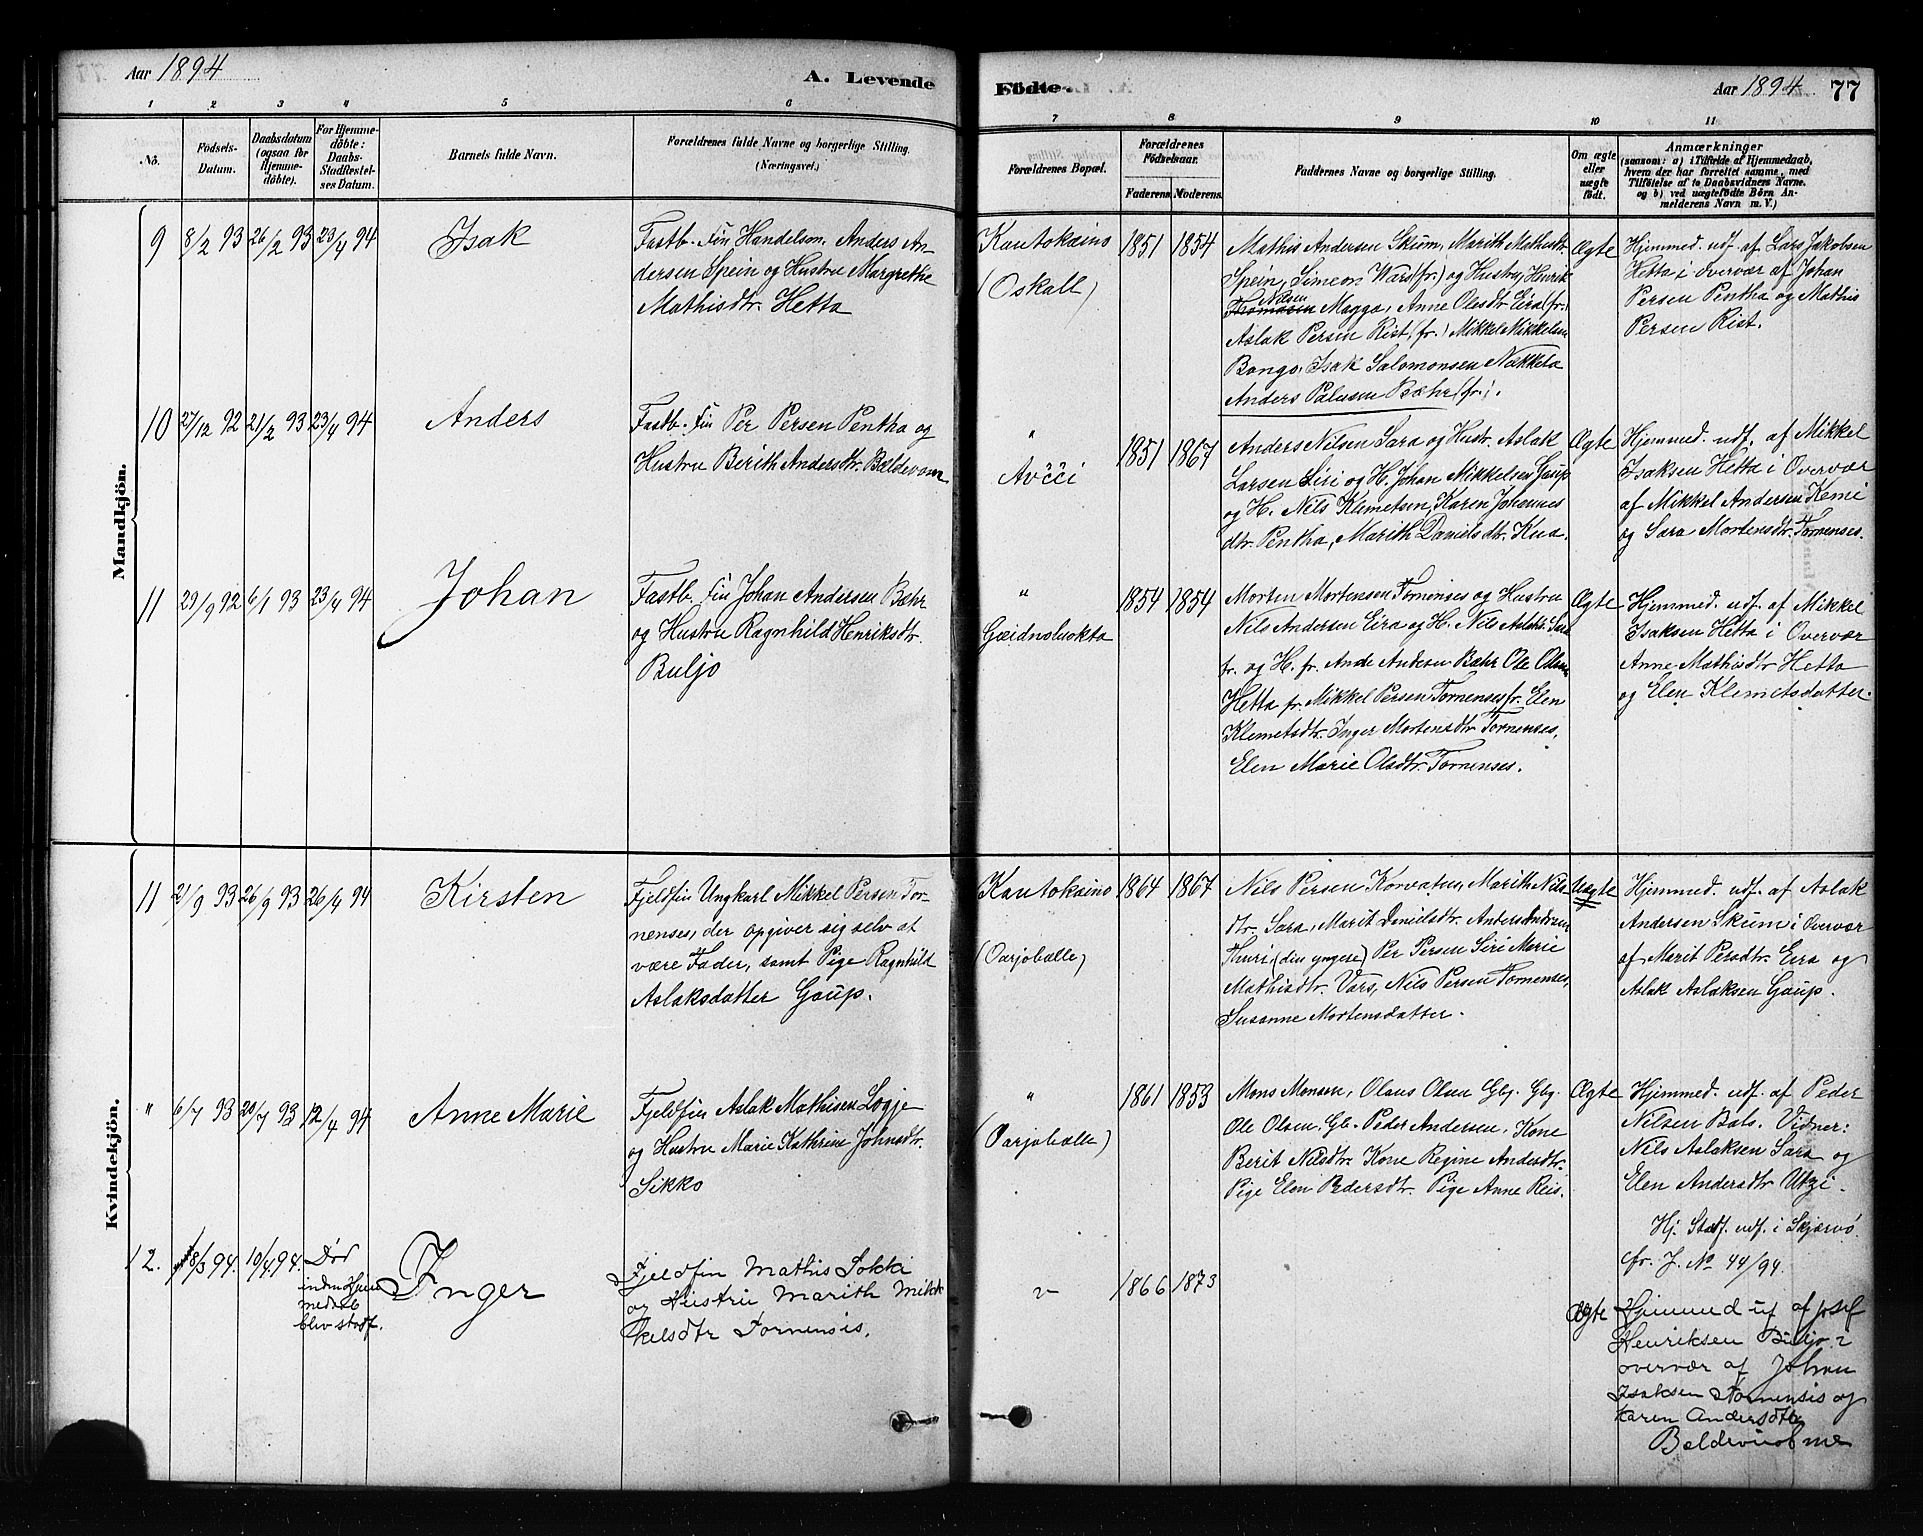 Aar 1894
A. Levende
Födte.
Aar 1894
77
1 2 3 4 5 6
7 8 9 10 11
No.
Födsels-
Datum.
Daabsdatum
(ogsaa for
Hjemme-
döbte).
For Hjemme-
döbte:
Daabs-
Stadfæstel-
ses Datum.
Barnets fulde Navn.
Forældrenes fulde Navne og borgerlige Stilling.
(Næringsvei.)
Forældrenes Bopæl.
Forældrenes
Födselsaar.
Faderens. Moderens.
Faddernes Navne og borgerlige Stilling.
Om ægte
eller
uægte
födt.
Anmærkninger
(saasom: a) i Tilfælde af Hjemmedaab,
hvem der har forrettet samme, med
Tilföielse af to Daabsvidners Navne,
og b) ved uægtefödte Börn An-
melderens Navn m. V.)
Mandkjön.
9 8/2 93 26/2 93 23/4 94 Isak
Fastb. Fin Handelsm. Anders An-
dersen Spein og Hustru Margrethe
Mathisdtr. Hetta
Kautokeino
(Oskall)
1851 1854
Mathis Andersen Skum, Marith Mathisdtr.
Spein, Simeon Wars (fr.) og Hustru, Henrik
Nilsen
Thomasen Magga, Anne Olesdtr Eira (fr.)
Aslak Persen Rist (fr.) Mikkel Mikkelsen
Bongo, Isak Salomonsen Näkkela
Anders Palusen Bæhr (fr.).
Ægte
Hjemmed. udf. af Lars Jakobsen
Hetta i overvær af Johan
Persen Pentha og Mathis
Persen Rist.
10 27/12 92 21/2 93 23/4 94 Anders
Fastb. Fin Per Persen Pentha og
Hustru Berith Andersdtr. Baldevuome
"
Avčči
1851 1867
Anders Nilsen Sara og Hustr. Aslak
Larsen Siri og H. Johan Mikkelsen Gaup
og H. Nils Klemetsen, Karen Johannes
dtr. Pentha, Marith Danielsdtr. Kua.
Ægte
Hjemmed. udf. af Mikkel
Isaksen Hetta i Overvær
af Mikkel Andersen Kemi
og Sara Mortensdtr. Tornenses.
11 29/9 92 6/1 93 23/4 94 Johan
Fastb. Fin Johan Andersen Bæhr
og Hustru Ragnhild Henriksdtr.
Buljo
"
Gæidnoluokta
1854 1854
Morten Mortensen Tornenses og Hustru
Nils Andersen Eira og H. Nils Aslaks. Sara
fr. og H. fr. Ande Andersen Bæhr Ole Olsen
Hetta fr. Mikkel Persen Tornenses fr. Elen
Klemetsdtr. Inger Mortensdtr Tornenses,
Elen Marie Olsdtr. Tornenses.
Ægte
Hjemmed. udf. af Mikkel
Isaksen Hetta i Overvær
Anne Mathisdtr Hetta
og Elen Klemetsdatter.
Kvindekjön.
11 21/9 93 26/9 93 26/4 94 Kirsten
Fjeldfin Ungkarl Mikkel Persen Tor-
nenses, der opgiver sig selv at
være Fader, samt Pige Ragnhild
Aslaksdatter Gaup.
Kautokeino
(Oarjobælle)
1864 1867
Nils Persen Korvatus, Marith Nils
dtr. Sara, Marit Danielsdtr. Anders Andersen
Thuri (den yngere) Per Persen Siri Marie
Mathisdtr. Vars, Nils Persen Tornenses,
Susanne Mortensdatter.
Uægte
Hjemmed. udf. af Aslak
Andersen Skum i Overvær
af Marit Persdtr. Eira og
Aslak Aslaksen Gaup.
" 6/7 93 20/7 93 12/4 94 Anne Marie
Fjeldfin Aslak Mathisen Logje
og Hustru Marie Kathrine Johnsdtr.
Sikko
"
(Oarjobælle)
1861 1853
Mons Monsen, Olaus Olsen Gbg. Gbg.
Ole Olsen. Gb. Peder Andersen. Kone
Berit Nilsdtr. Kone Regine Andersdtr.
Pige Elen Pedersdtr. Pige Anne Reis.
Ægte
Hjemmed. udf. af Peder
Nilsen Bals. Vidner:
Nils Aslaksen Sara og
Elen Andersdtr Utzi.
Hj. Stadf. udf. i Skjærvö
cfr. J. No 44/94.
12. 18/3 94. 10/4 94. Död
inden Hjem
medaab
blev stadf.
Inger
Fjeldfin Mathis Sokki
og Hustru Marith Mik
kelsdtr Tornensis.
"
1866 1873
Ægte
Hjemmed uf af Josef
Henriksen Buljo i
overvær af Johan
Isaksen Tornensis og
Karen Andersdtr
Baldevuobme